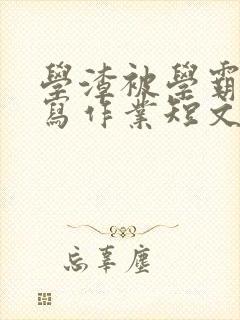 學渣被學霸
寫作業短文
忘辜塵